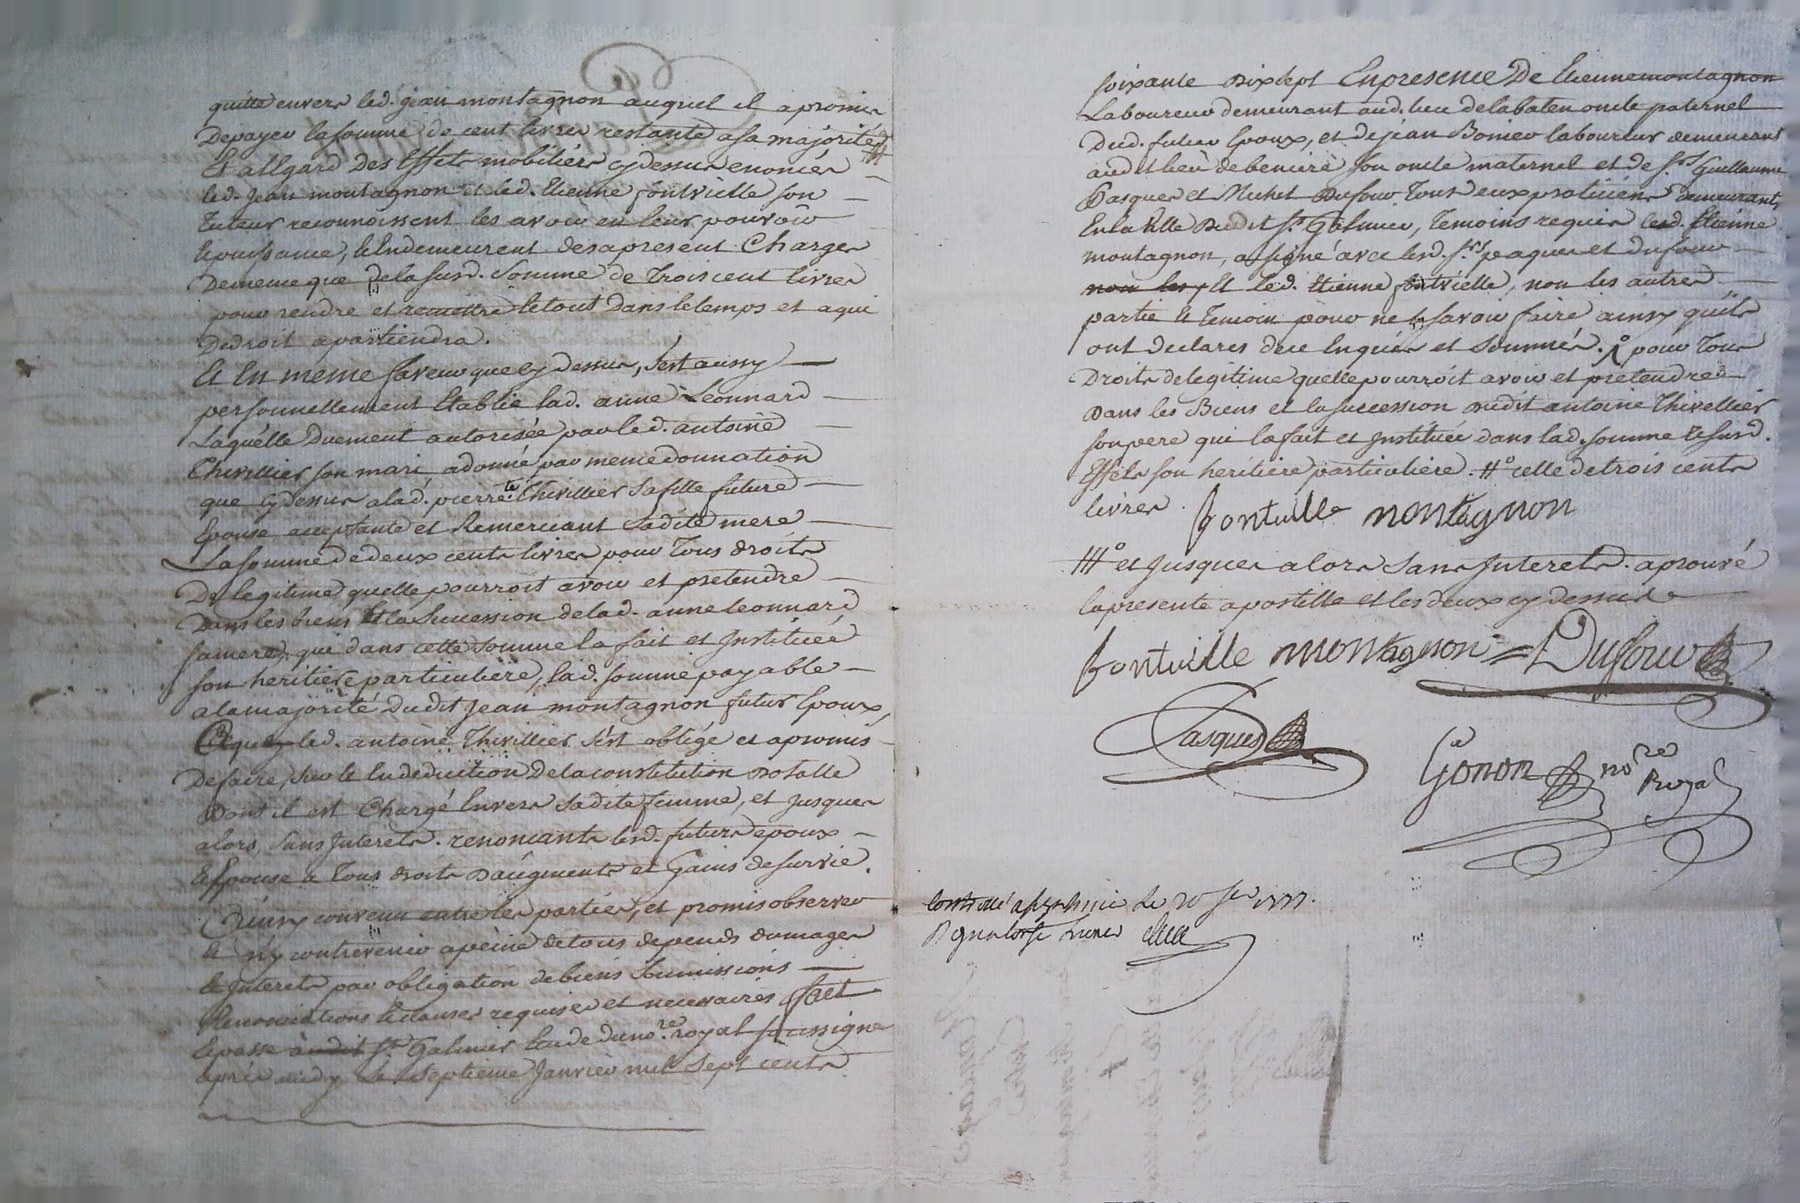 quitte envers led. jean montagnon auquel il a promis
De payer la somme de cent livres restante a sa majorité #
Et a l'égard Des Effets mobiliers cy dessus enoncés
led. Jean montagnon et led. Etienne fontvielle son
Tuteur reconnoissent les avoir en leur pouvoir
Et puissance, Et En demeurent des apresent Charges
De meme que de la susd. Somme de Trois cent livres
pour rendre et remettre le tout Dans le temps et a qui
De droit apartiendra.
Et En meme faveur que cy Dessus, s'est aussy
personnellement Etablie lad. anne Leonnard
Laquelle Duement autorisée par led. antoine
Thivillier son mari a donné par meme donnation
que cy Dessus a lad. pierrette Thivillier Sa fille future
Epouse acceptante et Remerciant Sadite mere
La somme de deux cents livres pour Tous droits
De legitime quelle pourroit avoir et pretendre
Dans les biens Et la Succession de lad. anne leonnard
sa mere, qui dans cette Somme la fait et Instituée
son heritiere particuliere, lad. somme payable
a la majorité Dudit Jean montagnon futur Epoux,
Ce que led. antoine Thivillier s'est obligé et a promis
De faire, sur et En deduction De la constitution Dotalle
Dont il est Chargé Envers Sadite femme, et jusques
alors, Sans Interets. renoncants lesd. futurs epoux
et Epouse a Tous droits D'augments et Gains de survie.
Ainsy convenu entre les parties, et promis observer
Et n'y contrevenir a peine de tous depends domages
Et Interets par obligation de biens Soumissions
Renonciations Et clauses requises et necessaires fait
Et passé audit St. Galmier Etude du nore. royal soussigné
après midy Le Septieme Janvier mil Sept cents
soixante Dix sept En presence De Etienne montagnon
Laboureur demeurant aud. lieu de la baten oncle paternel
Dud. futur Epoux, et de jean Bonier laboureur demeurant
audit lieu de beniere son oncle maternel et de srs. Guillaume
Pasques et Michel Dufour Tous deux praticiens demeurants
En la Ville Dudit St. Galmier, Temoins requis lesd. Etienne
montagnon, a signé avec lesd. srs. pasques et dufour
non les Et led. Etienne fontvielle, non les autres
partie Et Temoin pour ne le savoir faire ainsy quils
ont Declares de ce Enquis et Sommés. 1o pour Tous
Droits de legitime quelle pourroit avoir et pretendre
Dans les Biens et la succession Dudit antoine Thivellier
son pere qui la fait et Instituée dans lad. somme et susd.
Effets son heritiere particuliere. #o celle de trois cents
livres. fontvielle montagnon
###o et Jusques alors Sans Interets. aprouvé
la presente apostille et les deux cy dessus
fontvielle montagnon = Dufour
Pasques
Gonon nore Royal
Controllé a St Galmier Le 20 Jer 1777.
R quatorze livres